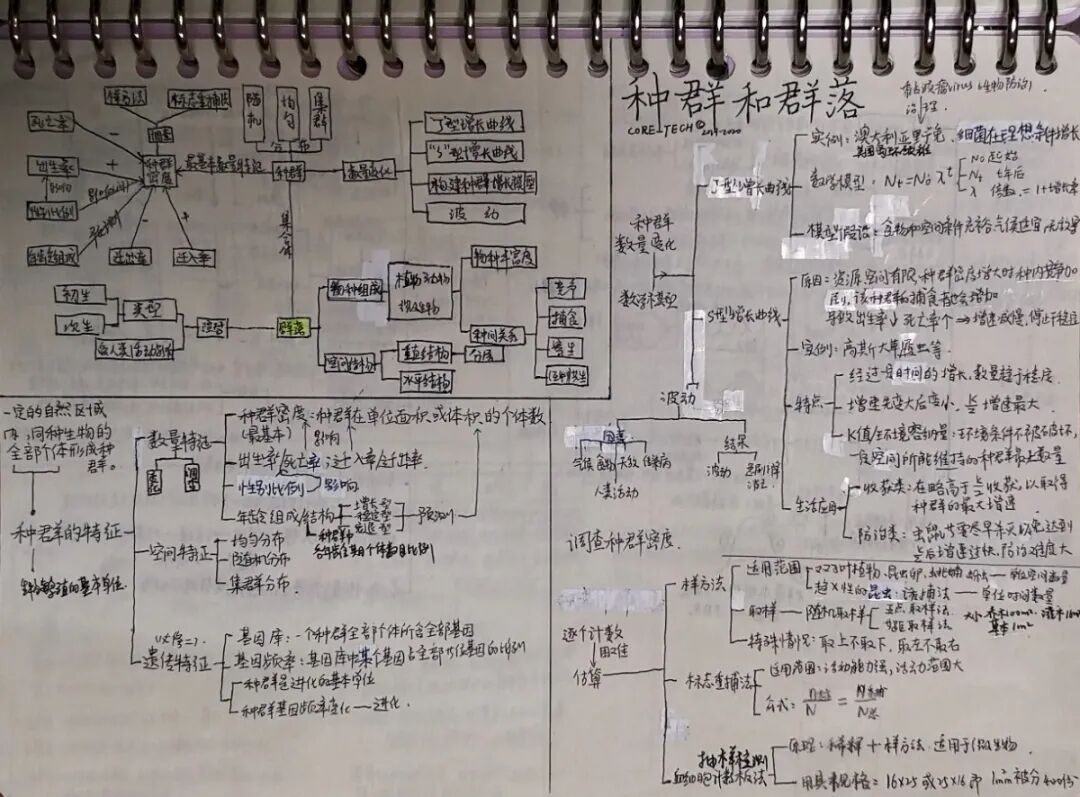 种群和群落
CORE-TECH©2019-2020
样方法
标志重捕法
随机
均匀
集群
调查
分布
死亡率
出生率
性别比例
年龄组成
迁出率
迁入率
种群密度
最基本数量特征
种群
数量变化
"J"型增长曲线
"S"型增长曲线
构建种群增长模型
波动
集合
群落
初生
次生
类型
演替
受人类活动影响
物种组成
植物 动物
微生物
物种丰富度
种间关系
竞争
捕食
寄生
互利共生
空间结构
垂直结构
分层
水平结构
一定的自然区域
内,同种生物的
全部个体形成种
群。
种群的特征
数量特征
种群密度:种群在单位面积或体积的个体数
(最基本)
影响
出生率死亡率;迁入率迁出率
性别比例
影响
年龄组成结构
增长型
稳定型
衰退型
预测
种群中
各年龄期个体数目比例
空间特征
均匀分布
随机分布
集群分布
遗传特征
(必修二)
基因库:一个种群全部个体所含全部基因
基因频率:基因库中某个基因占全部等位基因的比例
种群是进化的基本单位
种群基因频率变化——进化
种群
数量变化
数学模型
J型增长曲线
实例:澳大利亚野兔,细菌在理想条件增长
数学模型:Nt=N0λ^t
N0 起始
Nt t年后
λ 倍数=1+增长率
模型假设:食物和空间条件充裕气候适宜
S型增长曲线
原因:资源空间有限,种群密度增大时种内竞争加
剧,该种群的捕食者也会增加
导致出生率↓死亡率↑→增速减慢,停止于稳定
实例:高斯大草履虫等
特点
经过一段时间的增长,数量趋于稳定
增速先变大后变小,K/2增速最大
K值(环境容纳量):环境条件不被破坏,
一定空间所能维持的种群最大数量
生活应用
收获类:在略高于K/2收获,以取得
种群的最大增速
防治类:虫鼠害要尽早杀灭以免达到
K/2后增速过快,防治难度大
波动
因素
气候 食物 天敌 传染病
人类活动
结果
波动
调查种群密度
逐个计数
困难
估算
样方法
适用范围
双子叶植物,昆虫卵,蚜虫,跳蝻——单位空间数量
趋光性的昆虫:诱捕法——单位时间数量
取样——随机取样
五点取样法
等距取样法
大小:乔木100m²,灌木16m²
草本1m²
特殊情况:取上不取下,取左不取右
标志重捕法
适用范围:活动能力强,活动范围大
抽样检测
血细胞计数板法
原理:稀释+样方法.适用于微生物
用具规格=16×25或25×16即1mm²被分400份